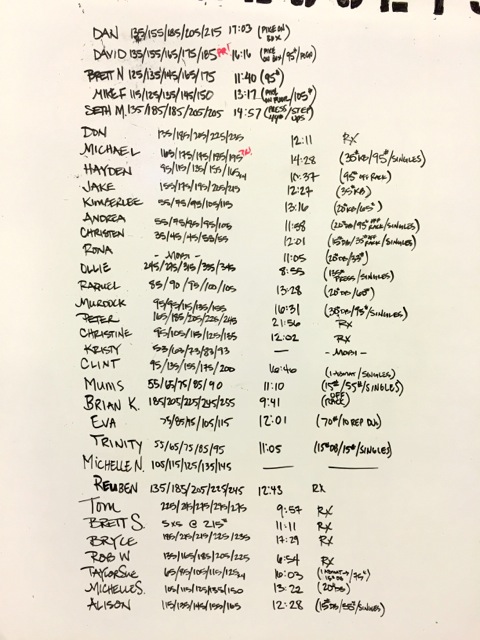 DAN 135/155/185/205/215 17:03 (PIKE ON BOX)
DAVID 135/155/165/175/185 PR! 16:16 (PIKE ON BOX/95#/RINGS)
BRETT N 125/135/145/165/175 11:40 (95#)
MIKE F 115/125/135/145/150 13:17 (PIKE ON FLOOR/105#)
SETH M. 135/185/185/205/205 14:57 (PRESS/STEP UPS)
DON 135/185/205/225/235 12:11 RX
MICHAEL 165/175/185/185/195 14:28 (35KB/95#/SINGLES)
HAYDEN 95/115/135/155/165 10:37 (95# OFF RACK)
JAKE 155/175/195/205/215 12:27 (35KB)
KIMBERLEE 55/75/95/105/115 13:16 (20KB/65#)
ANDREA 55/75/85/95/105 11:58 (20DB/95# OFF RACK/SINGLES)
CHRISTEN 35/45/45/55/55 12:01 (15DB/35# OFF RACK/SINGLES)
RONA - MODI - 11:05 (20DB/35#)
OLLIE 245/275/315/335/345 8:55 (135# PRESS/SINGLES)
RAQUEL 85/90/95/100/105 13:28 (20DB/65#)
MURDOCK 95/95/115/135/155 16:31 (35DB/95#/SINGLES)
PETER 165/185/205/225/245 21:56 RX
CHRISTINE 95/105/115/125/135 12:02 RX
KRISTY 53/63/73/83/93 — - MODI -
CLINT 95/135/155/175/200 16:46 (1 ABMAT/SINGLES)
MUMS 55/65/75/85/90 11:10 (15#/55#/SINGLES)
BRIAN K. 185/205/225/245/255 9:41 (OFF RACK)
EVA 75/85/95/105/115 12:01 (70#/10 REP DUs)
TRINITY 55/65/75/85/95 11:05 (15#DB/15#/SINGLES)
MICHELLE N. 105/115/125/135/145 — —
REUBEN 135/185/205/225/245 12:43 RX
TOM 225/245/275/275/275 9:57 RX
BRETT S. 5x5 @ 215# 11:11 RX
BRYCE 195/215/215/225/235 17:29 RX
ROB W 135/165/185/205/225 6:54 RX
TAYLORSUE 65/85/105/115/125 16:03 (1 ABMAT/75#)
MICHELLE S. 105/115/125/135/150 13:22 (20DB)
ALISON 115/135/145/155/165 12:28 (15DB/55#/SINGLES)